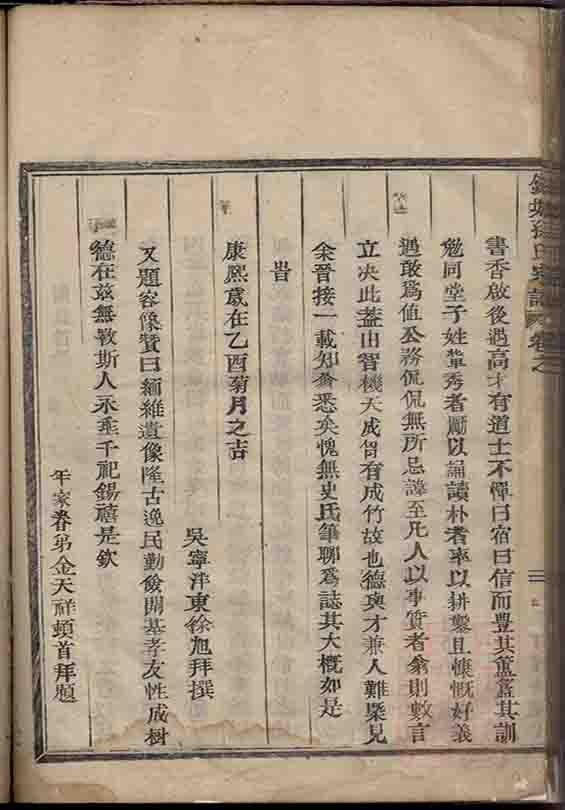 書香啟後遇高才有道士不憚曰宿曰信而豊其簠簋其訓
勉同堂子姓輩秀者勵以誦讀朴者率以耕鑿且慷慨好義
遇敢爲值公務侃侃無所忌諱至凡人以事質者翁則數言
立决此葢由智機天成胷有成竹故也德與才兼人難槩見
余晉接一載知翁悉矣愧無史氏筆聊爲誌其大概如是
旹
康熙歲在乙酉菊月之吉
吳寧泮東徐旭拜撰
又題容像贊曰緬維遺像隆古逸民勤儉開基孝友性成樹
德在兹無斁斯人永垂千祀錫禧是欽
年家眷弟金天祥頓首拜題